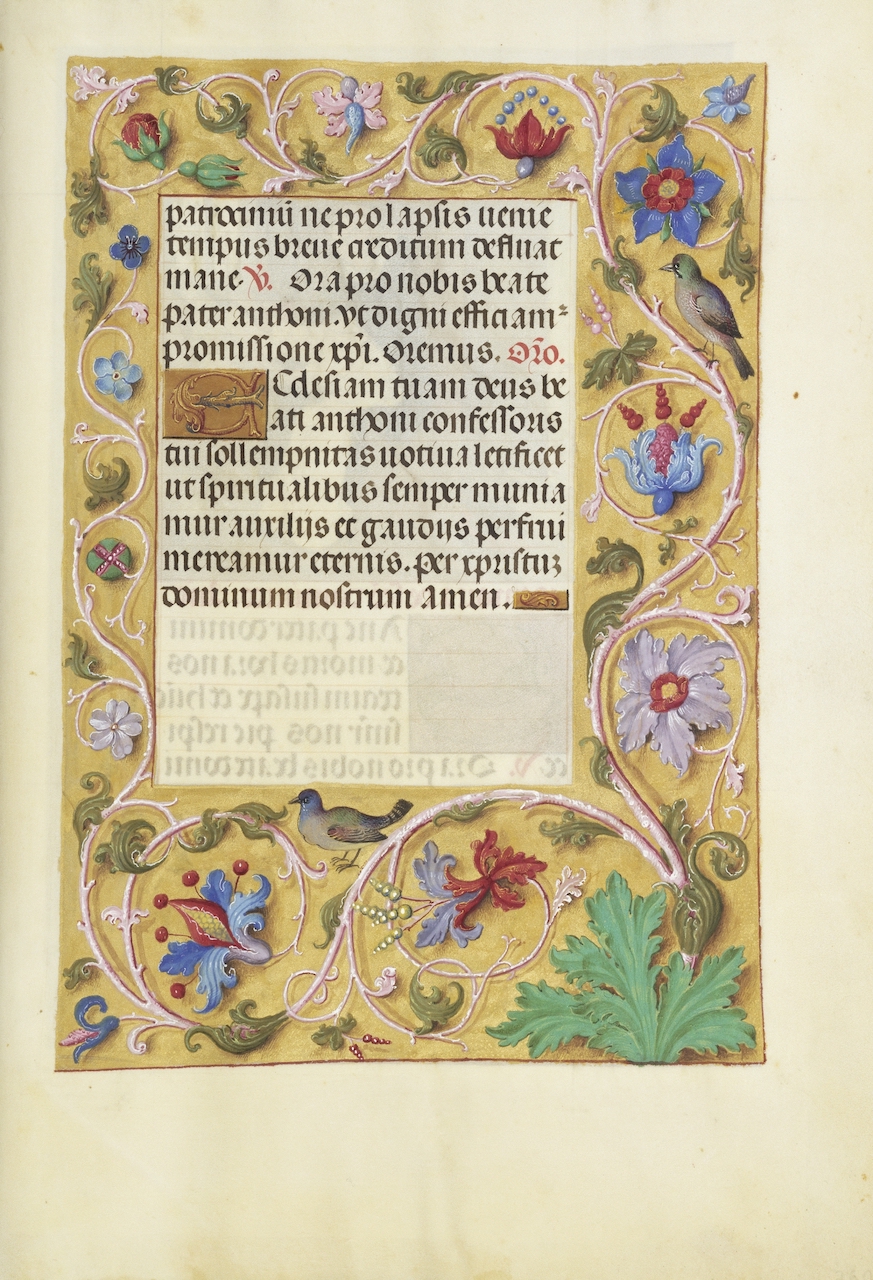 patrociniū ne prolapsis uenie
tempus breue creditum defluat
mane. V. Ora pro nobis beate
pater anthoni. vt digni efficiam⸗
promissione xpi. Oremus. Oro.
Ecclesiam tuam deus be
ati anthonii confessoris
tui sollempnitas uotiua letificet
ut spiritualibus semper munia
mur auxilijs et gaudijs perfrui
mereamur eternis. per xpristuz
dominum nostrum Amen.